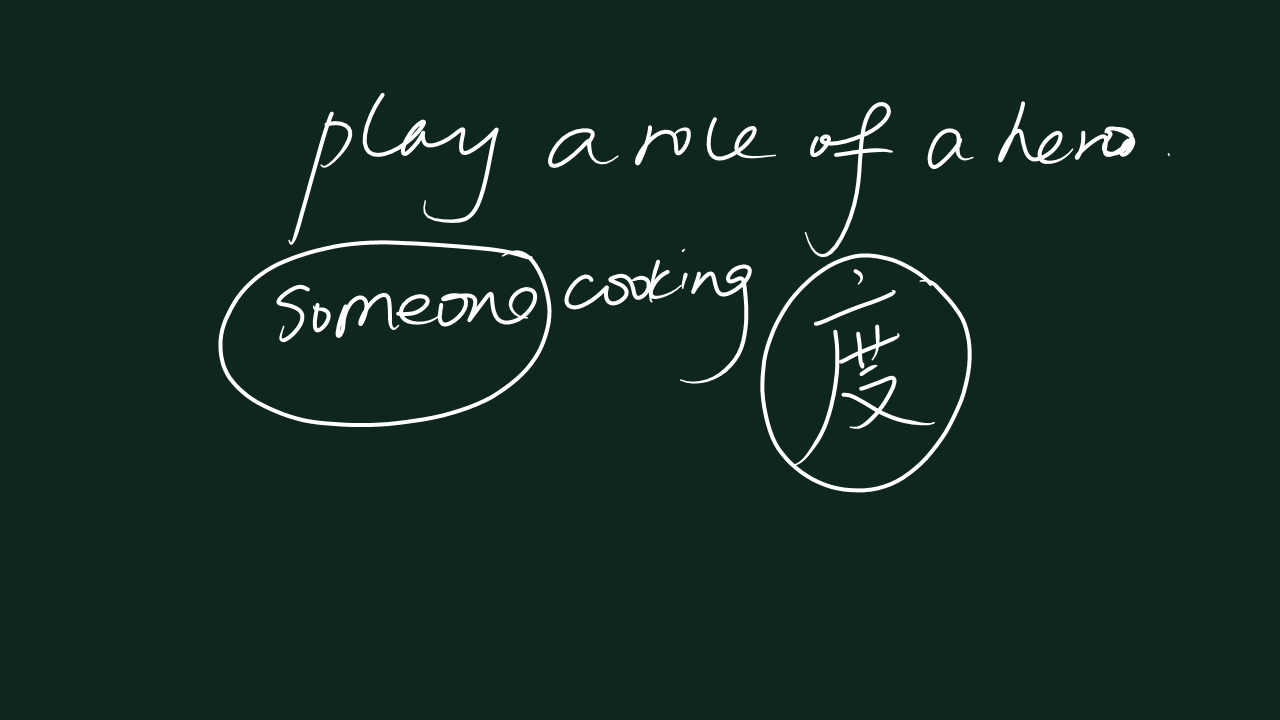 play a role of a hero.
someone cooking 度